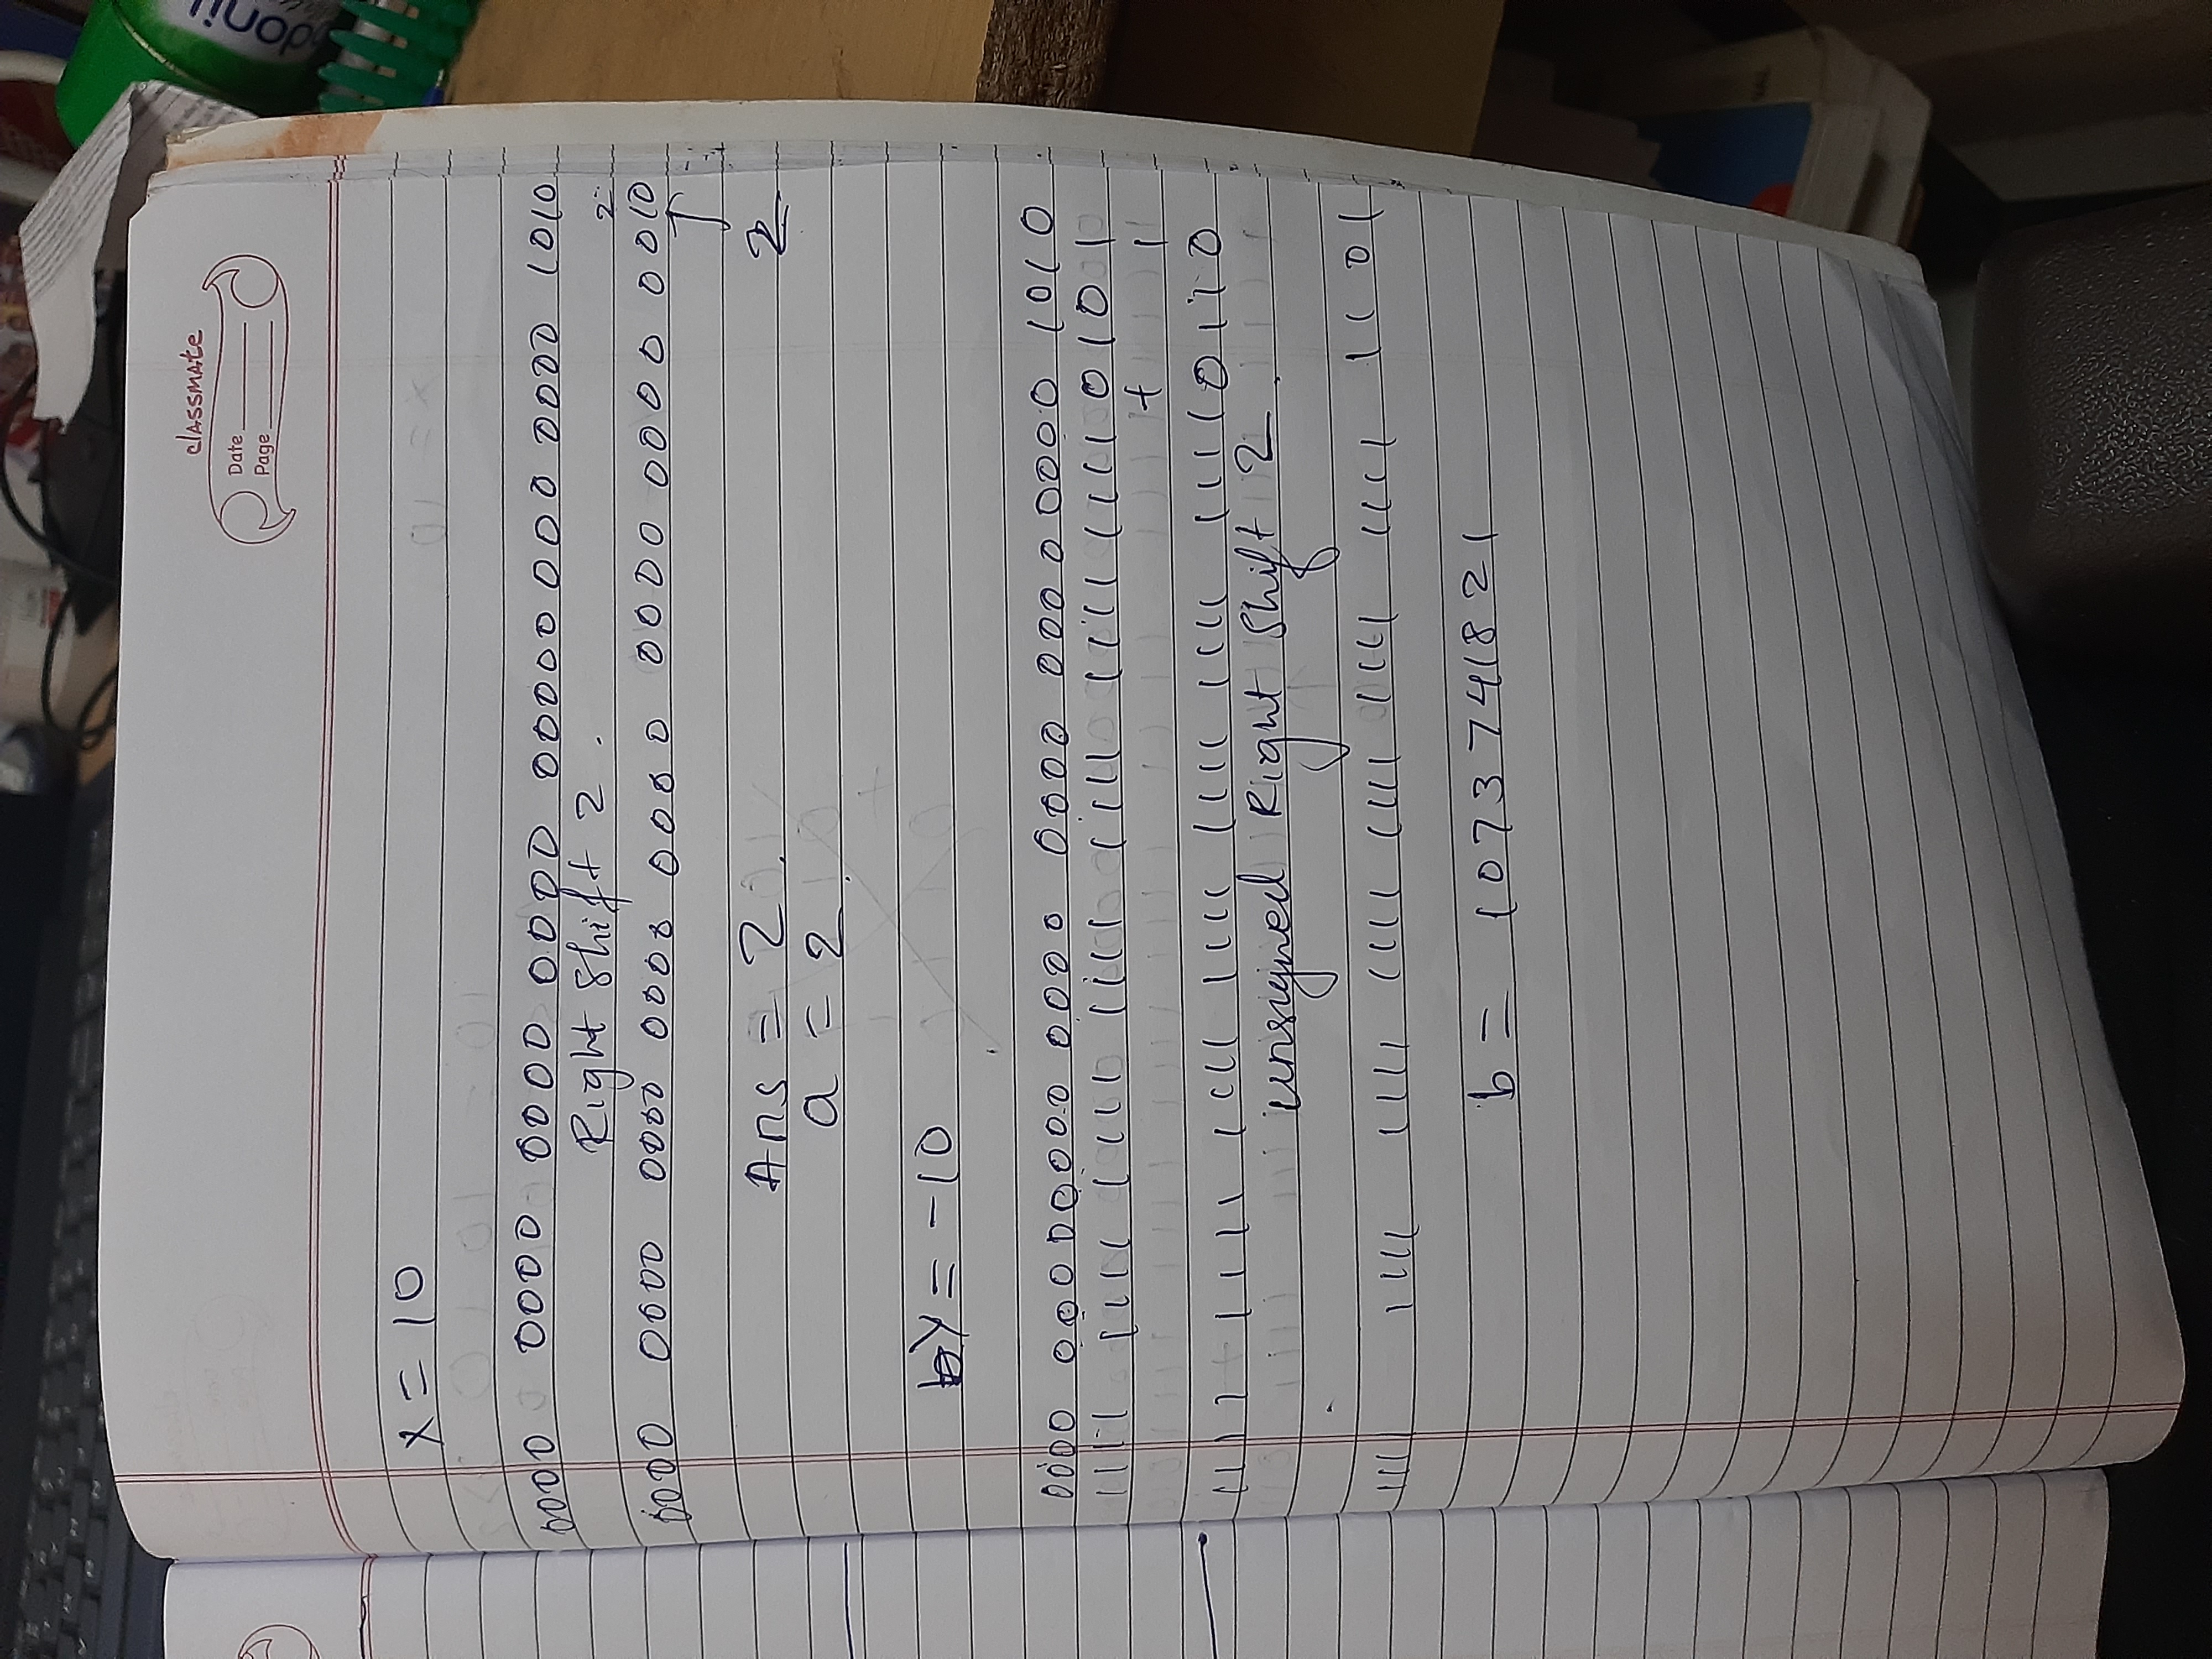 classmate
Date
Page
x = 10
0000 0000 0000 0000 00000 000 0000 1010
Right Shift 2.
2
0000 0000 0000 0000 0000 0000 0000 0010
2
Ans = 2.
a = 2.
Y = -10
0000 00000000 0000 0000 0000 0000 1010
1111 1111 1111 1111 1111 1111 1111 0101
+ 1
1111 1111 1111 1111 1111 1111 1111 0110
unsigned Right Shift 2.
1111 1111 1111 1111 1111 1111 1111 1101
b = 1073741821